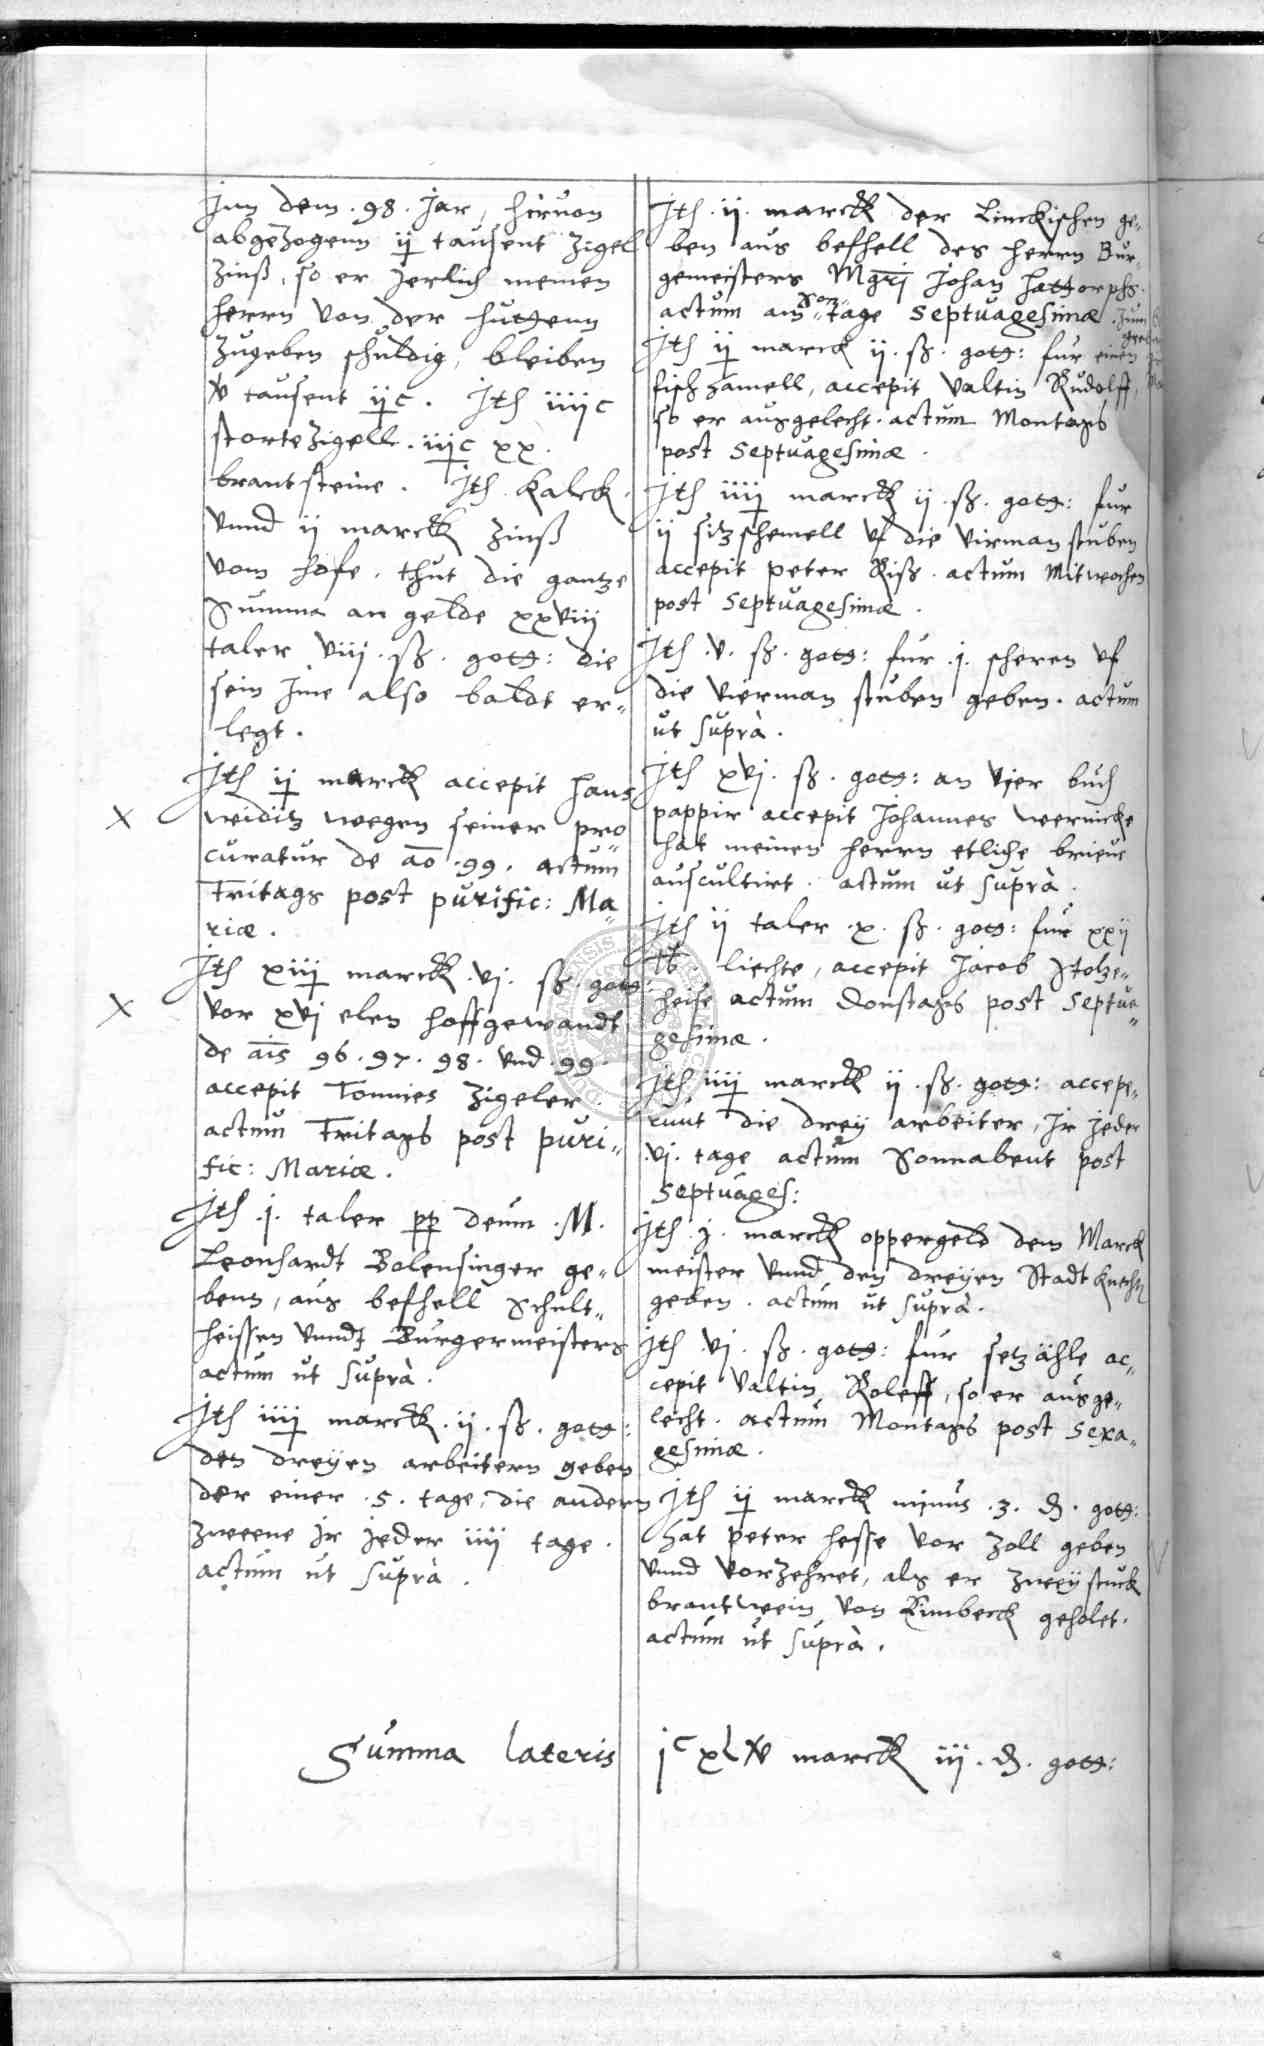 Inn dem . 98 . Jar, hiruon
abgezogenn ij tausent Zigel
Zinß, so er Jerlich meinen
herrn von der hüttenn
Zugeben schuldig, bleiben
v tausent ijc . Jth iiijc
storte Zigell . iijc xx .
brantsteine . Jth Kalck .
Vnnd ij marck Zinß
vom Hofe . thut die gantze
Summa an gelde xxviij
taler viij . ß . gott: die
sein Jme also baldt er=
legt .
Jth ij marck accepit Hans
weiditz wegen seiner pro
curatur de ao . 99 . actum
Fritags post purific: Ma=
riæ .
Jth xiij marck . vj . ß . gott
vor xvj elen hoffgewandt
de ais 96 . 97 . 98 . vnd . 99 .
accepit Tonnies Zigeler
actum Fritags post puri=
fic: Mariæ .
Jth . j . taler pp deum . M .
Leonhardt Bolensinger ge=
benn, aus befhell Schult=
heissen vnndt Burgermeisters
actum ut suprà .
Jth iiij marck . ij . ß . gott:
den dreyen arbeitern geben
der einer . 5 . tage, die andern
zweene Jr jeder iiij tage .
actum ut suprà .
Jth . ij . marck der Linckischen ge=
ben aus befhell des herrn Bur=
gemeisters Mgri Johan Hattorphs .
actum am Son=tage Septuagesimæ .
Jth ij marck ij . ß . gott: fur einen
fisch hamell, accepit Valtin Rudolff,
so er ausgelecht . actum Montags
post Septuagesimæ .
Jth iiij marck ij . ß . gott: fur
ij sitzschemell vf die virman stuben
accepit peter Riß . actum Mitwochen
post Septuagesimæ .
Jth . v . ß . gott: fur . j . scheren vf
die vierman stuben geben . actum
ut suprà .
Jth xvj . ß . gott: an vier buch
pappir accepit Johannes wernicke
hat meinen herrn etliche brieue
auscultirt . actum ut suprà .
Jth ij taler . x . ß . gott: fur xxij
lb liechte, accepit Jacob Stolze=
heise actum Donstags post Septua=
gesimæ .
Jth iiij marck ij . ß . gott: accepe=
runt die drey arbeiter, Jr jeder
. vj . tage actum Sonnabent post
Septuages:
Jth . j . marck oppergeld dem Marck
meister vnnd den dreyen Stadt knechtn
geben . actum ut suprà .
Jth . vj . ß . gott: fur setz ähle ac=
cepit Valtin Roleff, so er ausge=
lecht . actum Montags post Sexa=
gesimæ .
Jth ij marck minus . 3 . ₰ . gott:
hat peter hesse vor Zoll geben
vnnd vorzehret, als er zweij stuck
brantwein von Eimbeck geholet .
actum ut suprà .
Summa lateris jc xlv marck iij . ₰ . gott: